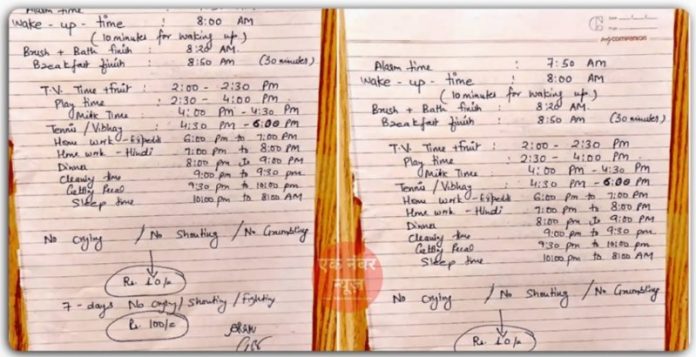 Alarm time
Wake - up - time : 8:00 AM
(10 minutes for waking up)
Brush + Bath finish : 8:20 AM.
Breakfast finish : 8:50 AM (30 minutes)
T.V. Time +fruit : 2:00 - 2:30 PM
Play time : 2:30 - 4:00 PM
Milk Time : 4:00 PM - 4:30 PM
Tennis / : 4:30 PM - 6:00 PM
Home work - 6:00 PM to 7:00 PM
Hme work - Hindi 7:00 pm to 8:00 PM
Dinner 8:00 pm to 9:00 PM
Cleaning time 9:00 pm to 9:30 pm.
9:30 pm to 10:00 pm
Sleep time 10:00 pm to 8:00 AM
No Crying / No Shouting / No Grumbling
Rs. 10/=
7 - days No crying / Shouting / fighting
Rs. 100/=
एक नंबर
न्यूज़
companion
Alarm time : 7:50 AM
Wake - up - time : 8:00 AM
(10 minutes for waking up)
Brush + Bath finish : 8:20 AM.
Breakfast finish : 8:50 AM (30 minutes)
T.V. Time +fruit : 2:00 - 2:30 PM
Play time : 2:30 - 4:00 PM
Milk Time : 4:00 PM - 4:30 PM
Tennis / : 4:30 PM - 6:00 PM
Home work - 6:00 PM to 7:00 PM
Hme work - Hindi 7:00 pm to 8:00 PM
Dinner 8:00 pm to 9:00 PM
Cleaning time 9:00 pm to 9:30 pm.
9:30 pm to 10:00 pm
Sleep time 10:00 pm to 8:00 AM
No Crying / No Shouting / No Grumbling
Rs. 10/=